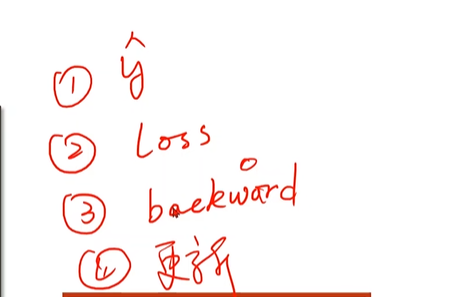 ① ŷ
② Loss
③ backward
④ 更新